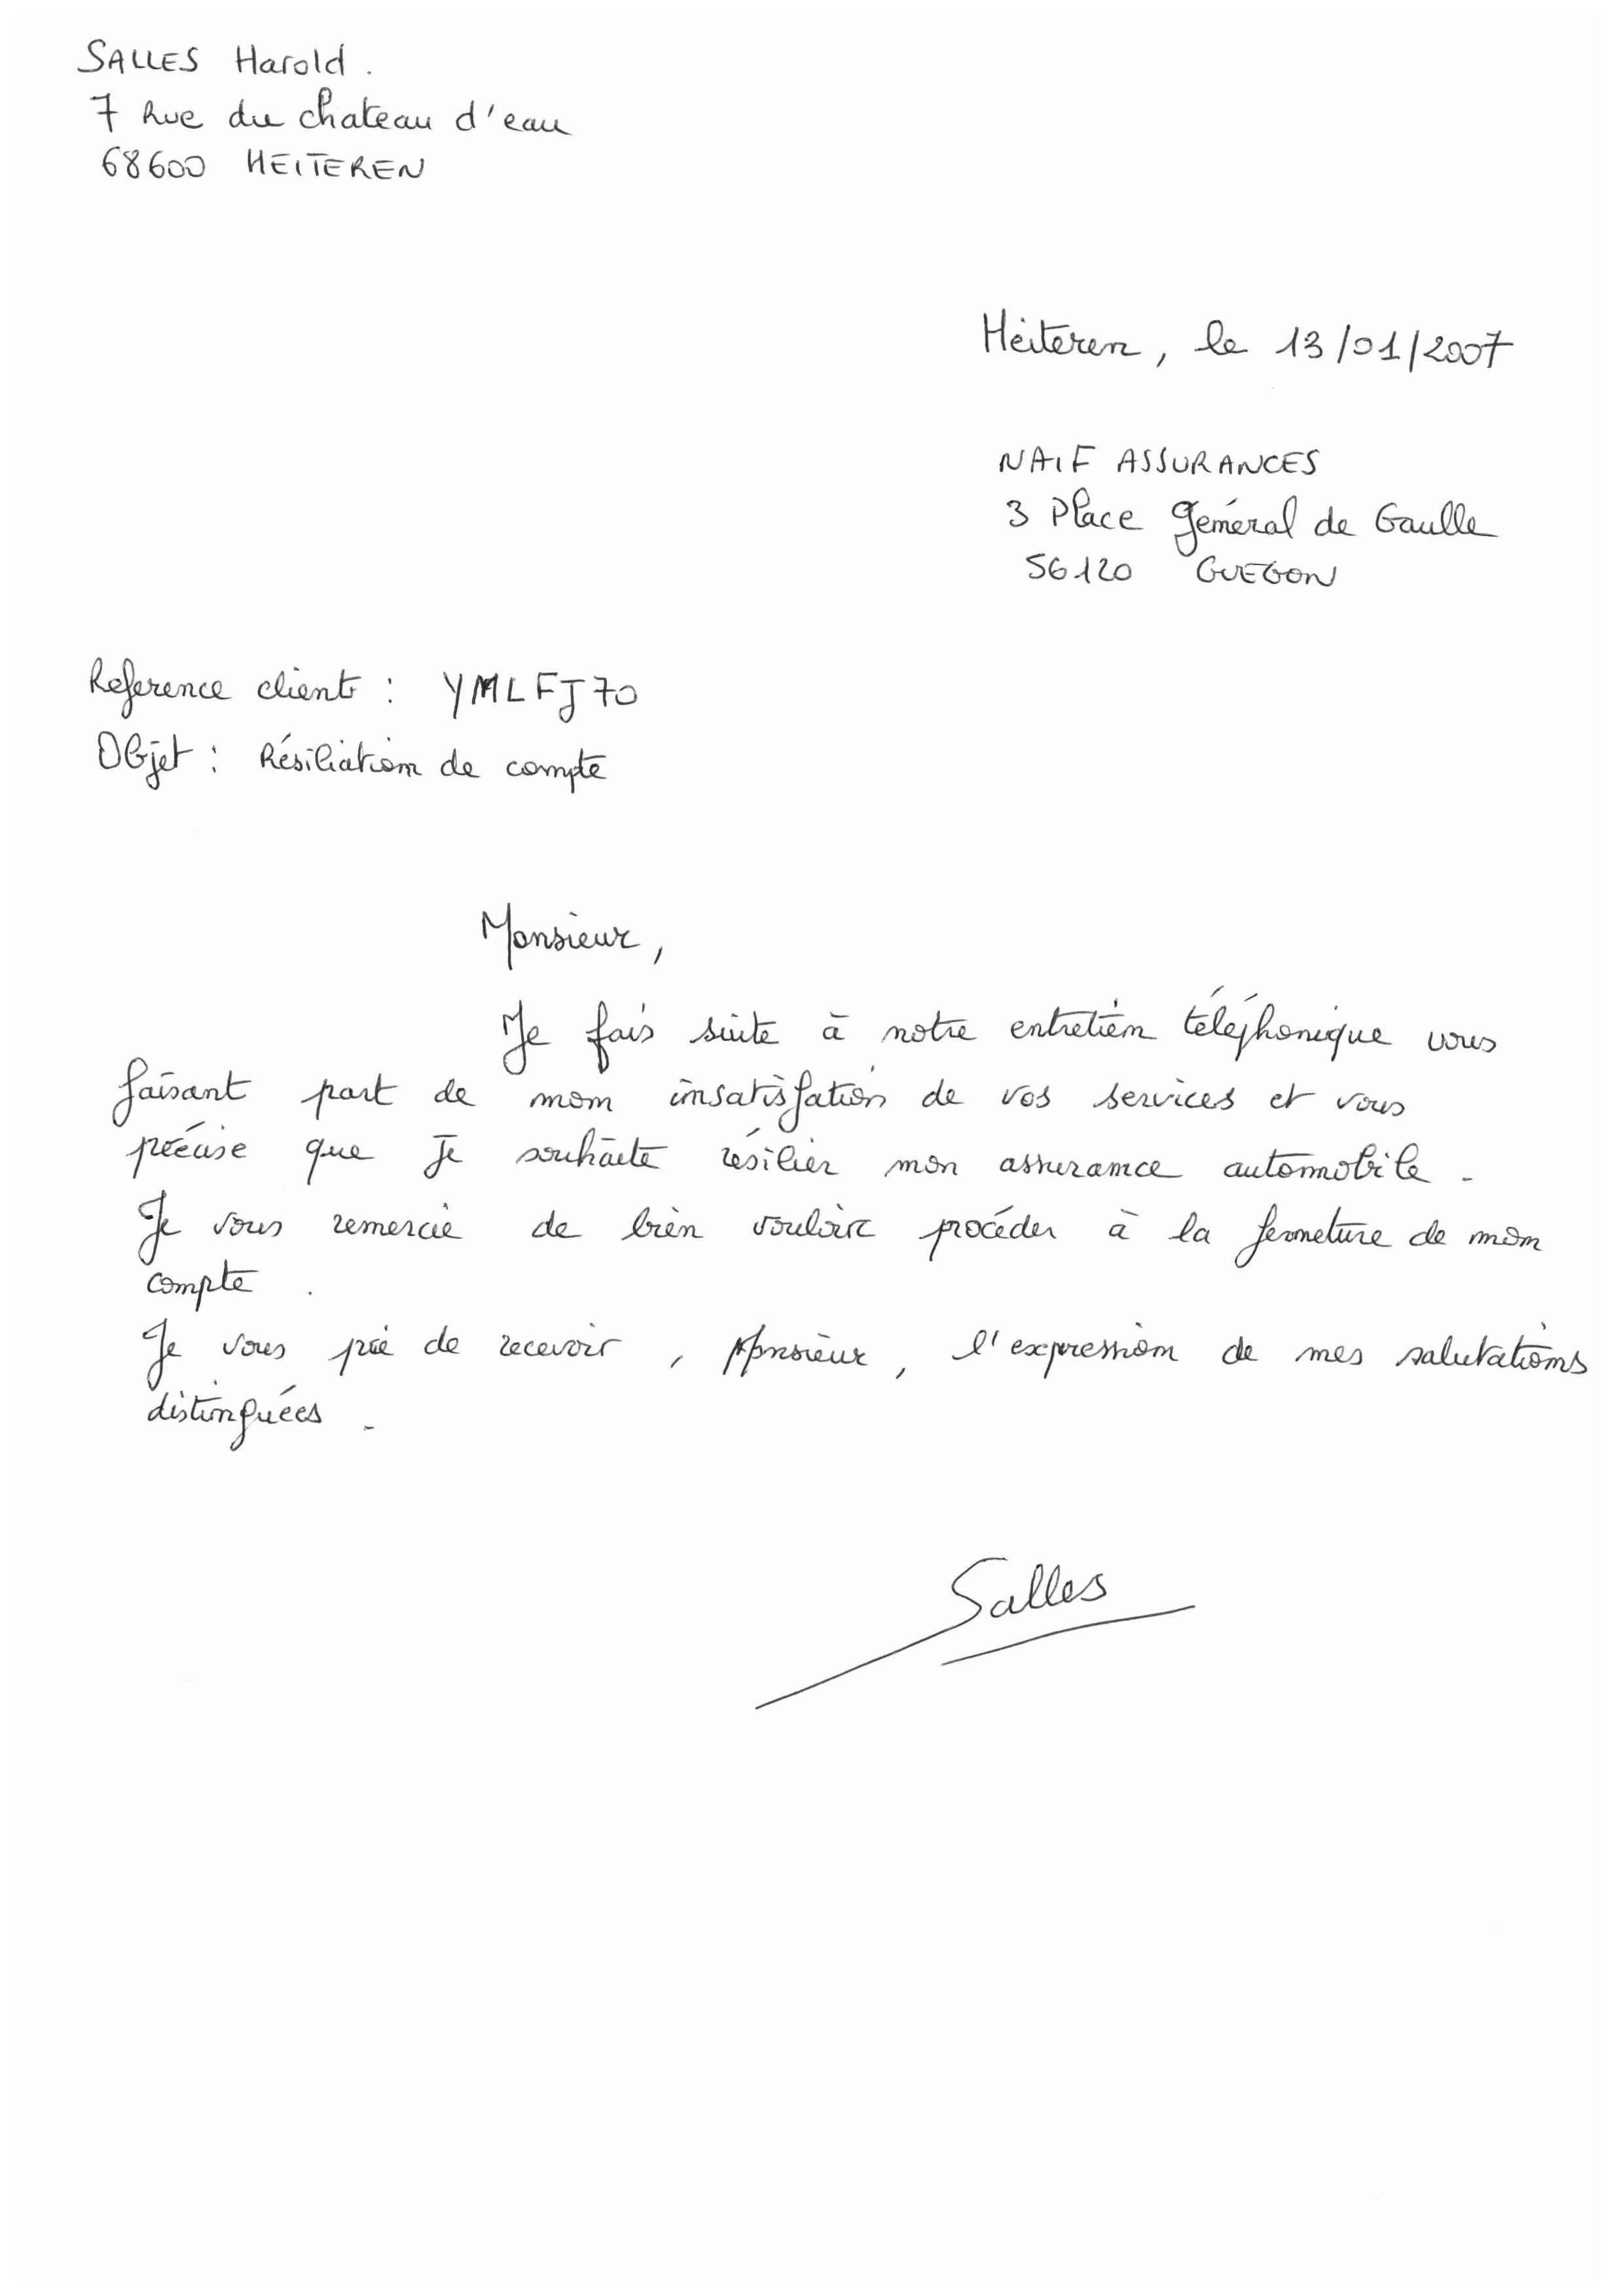 SALLES Harold.
7 Rue du chateau d'eau
68600 HEITEREN
Heiteren, le 13/01/2007
NAIF ASSURANCES
3 Place général de Gaulle
56120 GUEGON
Reference client : YMLFJ70
Objet : Résiliation de compte
Monsieur,
Je fais suite à notre entretien téléphonique vous
faisant part de mon insatisfation de vos services et vous
précise que je souhaite résilier mon assurance automobile.
Je vous remercie de bien vouloir procéder à la fermeture de mon
compte.
Je vous prie de recevoir, Monsieur, l'expression de mes salutations
distinguées.
Salles